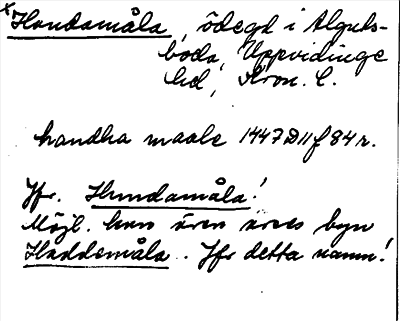 x Handamåla, ödegd i Älguts-
boda, Uppvidinge
hd, Kron. l.
handha maale 1447 D 11 f 84 r.
Jfr. Hundamåla!
Möjl. kan även avses byn
Haddemåla. Jfr detta namn!